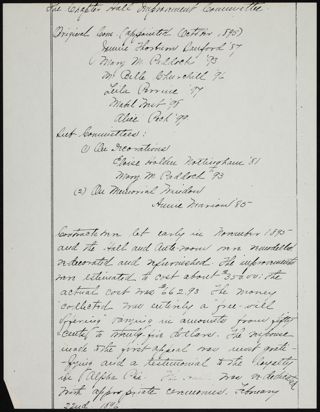 The Chapter Hall Improvement Committee.
Original Com. (appointed October 1895)
Jennie Thorburn Sanford '87
Mary M. Paddock '93
M. Belle Churchill '96
Leila Perrine '97
Mabel 95
Alice Peck '99
Sub-Committees:
(1) On Decorations
Eloise Holden Nottingham '81
Mary M. Paddock '93
(2) On Memorial Window
Annie Marion '85
Contracts were let early in November 1895
and the Hall and Ante-room were remodelled
redecorated and refurnished. The improvements
were estimated to cost about $350.00; the
actual cost was $662.93. The money
collected was entirely a free-will
offering ranging in amounts from fifty
cents to twenty five dollars. The response
made to the first appeal was most satis-
fying and a testimonial to the loyalty
of Alpha Phi. The was rededicated
with appropriate ceremonies February
22nd 1896